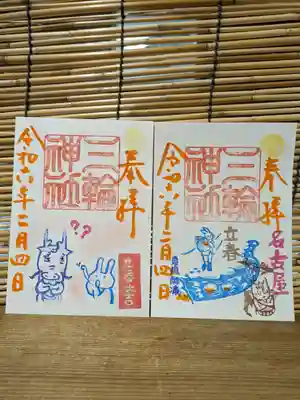 奉拝
三輪
神社
令和六年二月四日
??
奉拝
三輪
神社
令和六年二月四日
立春
名古屋